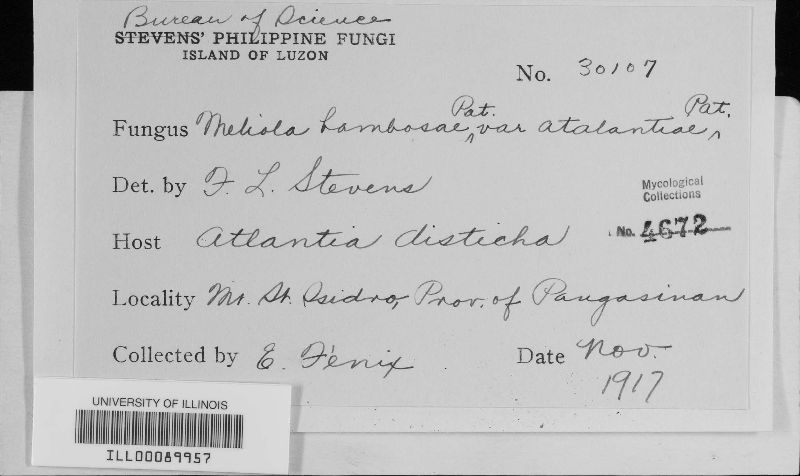 Bureau of Science
STEVENS' PHILIPPINE FUNGI
ISLAND OF LUZON
No. 30107
Pat. Pat.
Fungus Meliola bambosae, var atalantiae,
Det. by F. L. Stevens
Mycological
Collections
No. 4672
Host Atlantia disticha
Locality Mt. St. Isidro, Prov. of Pangasinan
Collected by E. Fénix Date Nov.
1917
UNIVERSITY OF ILLINOIS
ILL00089957